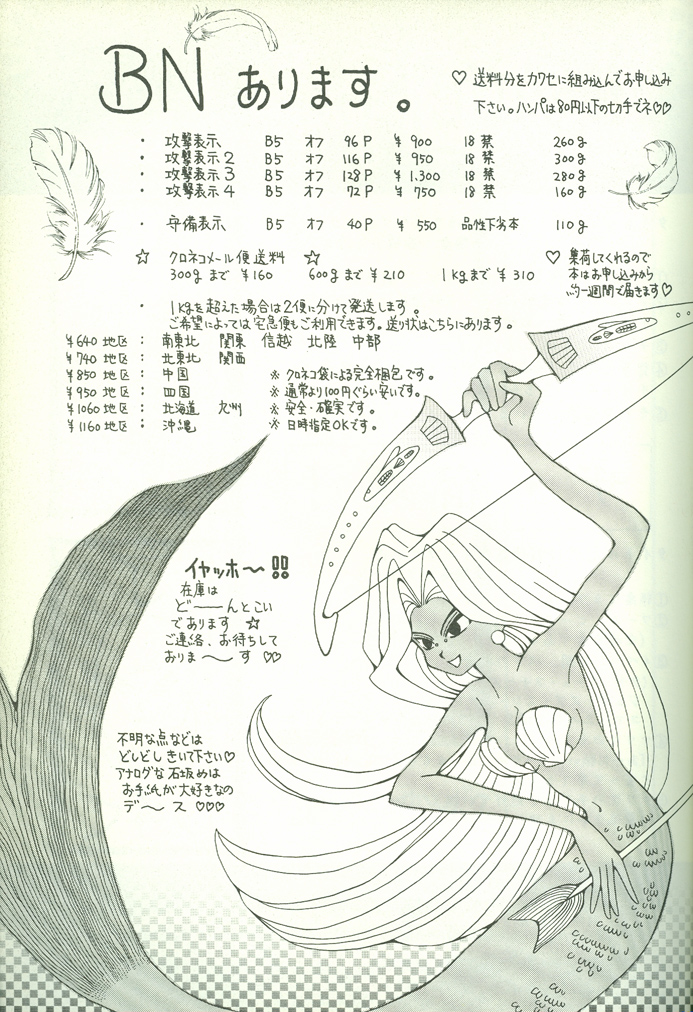 BN あります。
♡ 送料分をカワセに組み込んでお申し込み
下さい。ハンパは80円以下の切手でネ♡♡
・ 攻撃表示 B5 オフ 96P ¥900 18禁 260g
・ 攻撃表示2 B5 オフ 116P ¥950 18禁 300g
・ 攻撃表示3 B5 オフ 128P ¥1.300 18禁 280g
・ 攻撃表示4 B5 オフ 72P ¥750 18禁 160g
・ 守備表示 B5 オフ 40P ¥550 品性下劣本 110g
☆ クロネコメール便送料 ☆
300gまで ¥160 600gまで ¥210 1kgまで ¥310
♡ 集荷してくれるので
本はお申し込みから
約一週間で届きます♡
・ 1kgを超えた場合は2便に分けて発送します。
ご希望によっては宅急便もご利用できます。送り状はこちらにあります。
¥640 地区 : 南東北 関東 信越 北陸 中部
¥740 地区 : 北東北 関西
¥850 地区 : 中国 ※ クロネコ袋による完全梱包です。
¥950 地区 : 四国 ※ 通常より100円ぐらい安いです。
¥1060 地区 : 北海道 九州 ※ 安全・確実です。
¥1160 地区 : 沖縄 ※ 日時指定OKです。
イヤッホ〜!!
在庫は
ど――んとこい
であります ☆
ご連絡、お待ちして
おりま〜す ♡♡
不明な点などは
どしどし きいて下さい♡
アナログな石坂めは
お手紙が大好きなの
デ〜ス ♡♡♡